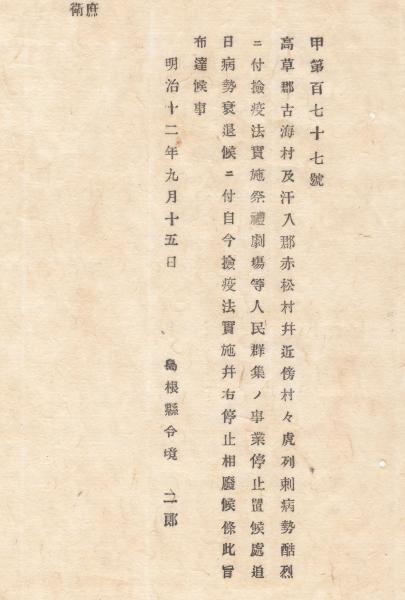 甲第百七十七號
高草郡古海村及汗入郡赤松村幷近傍村々虎列刺病勢酷烈
ニ付撿疫法實施祭禮劇塲等人民群集ノ事業停止置候處追
日病勢衰退候ニ付自今撿疫法實施幷右停止相廢候條此旨
布達候事
明治十二年九月十五日　島根縣令境　二郎
庶
衛